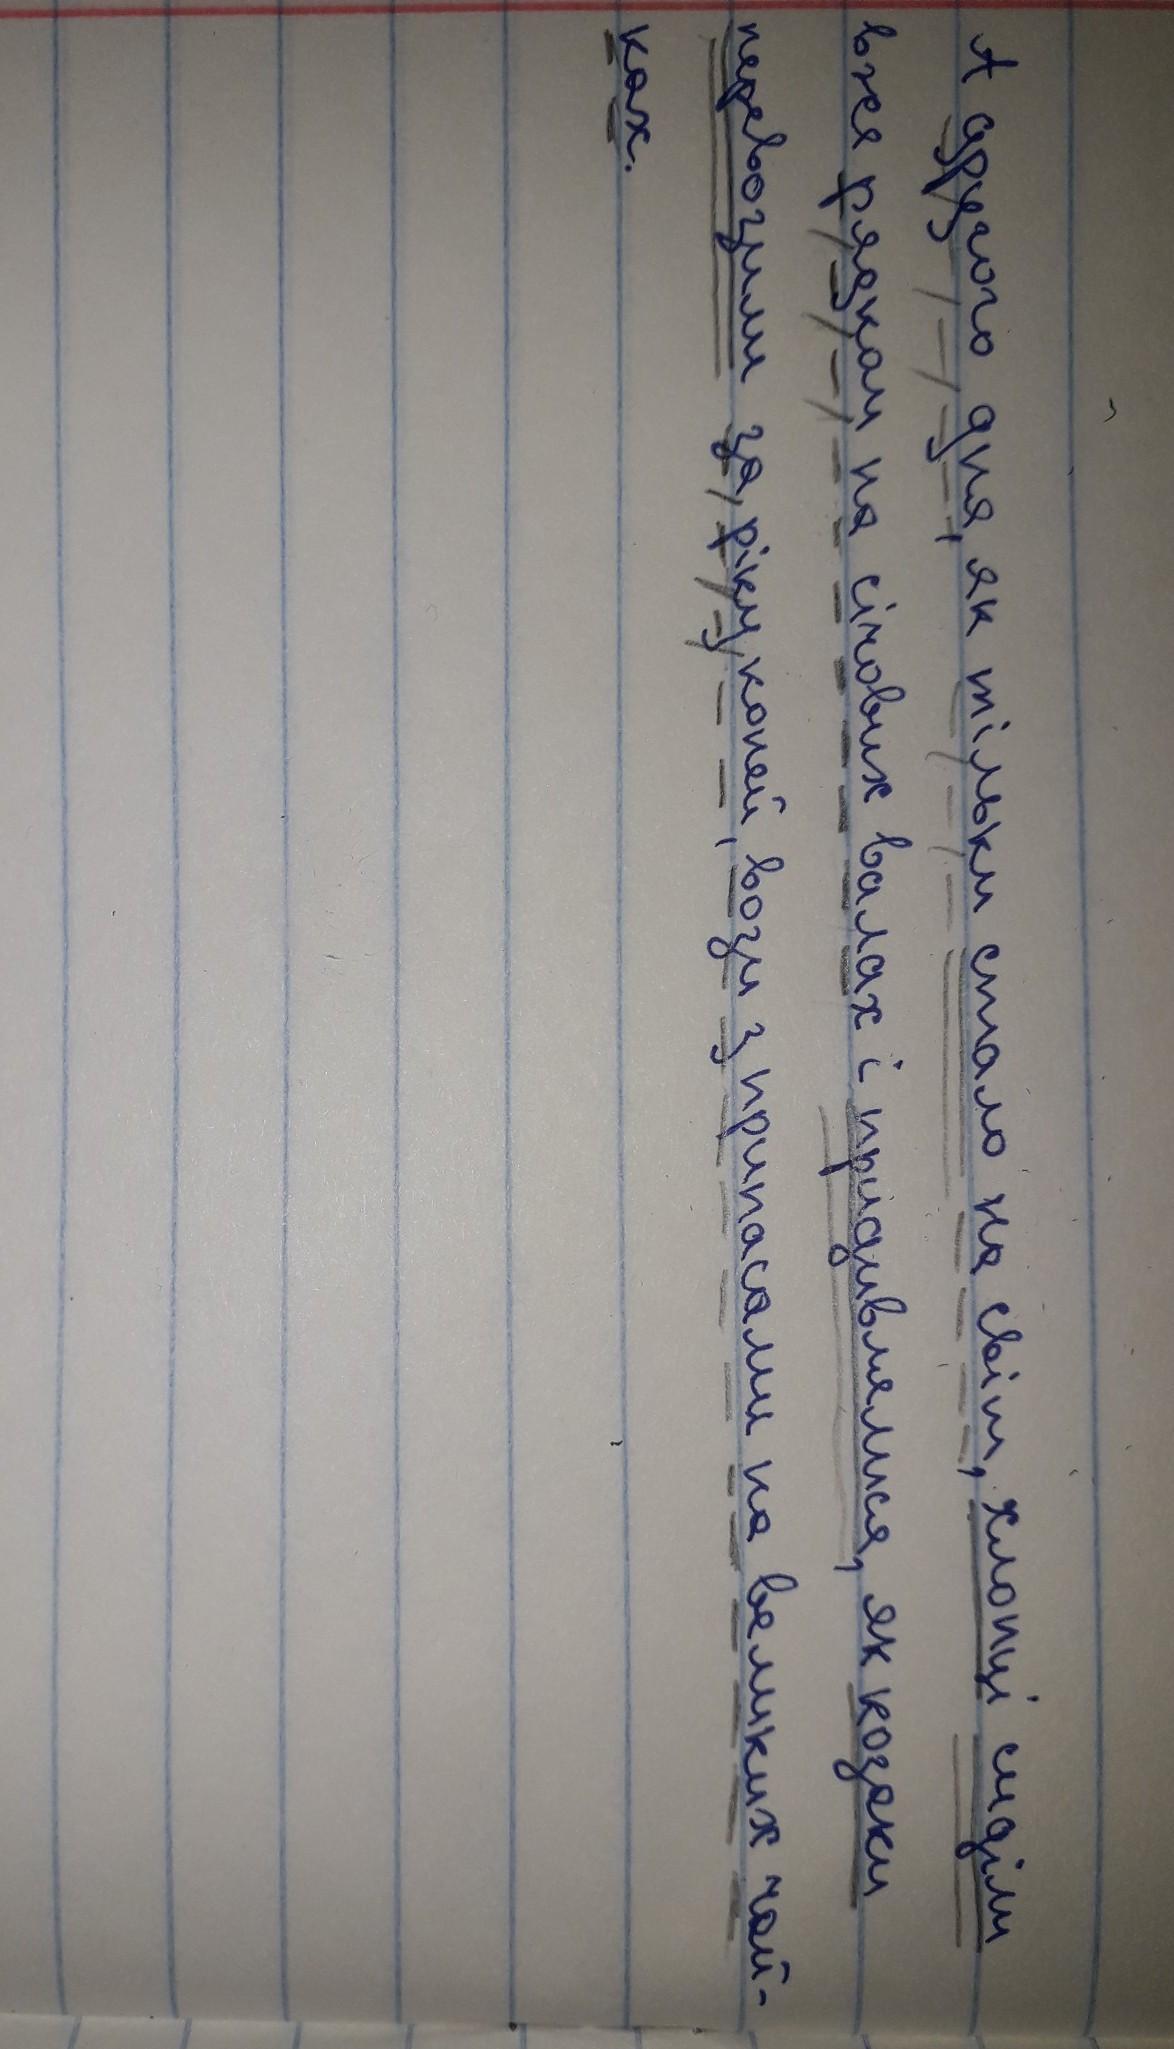 А другого дня, як тільки стало на світ, хлопці сиділи
вже рядком на січових валах і придивлялися, як козаки
перевозили за ріку коней, вози з припасами на великих чай-
ках.